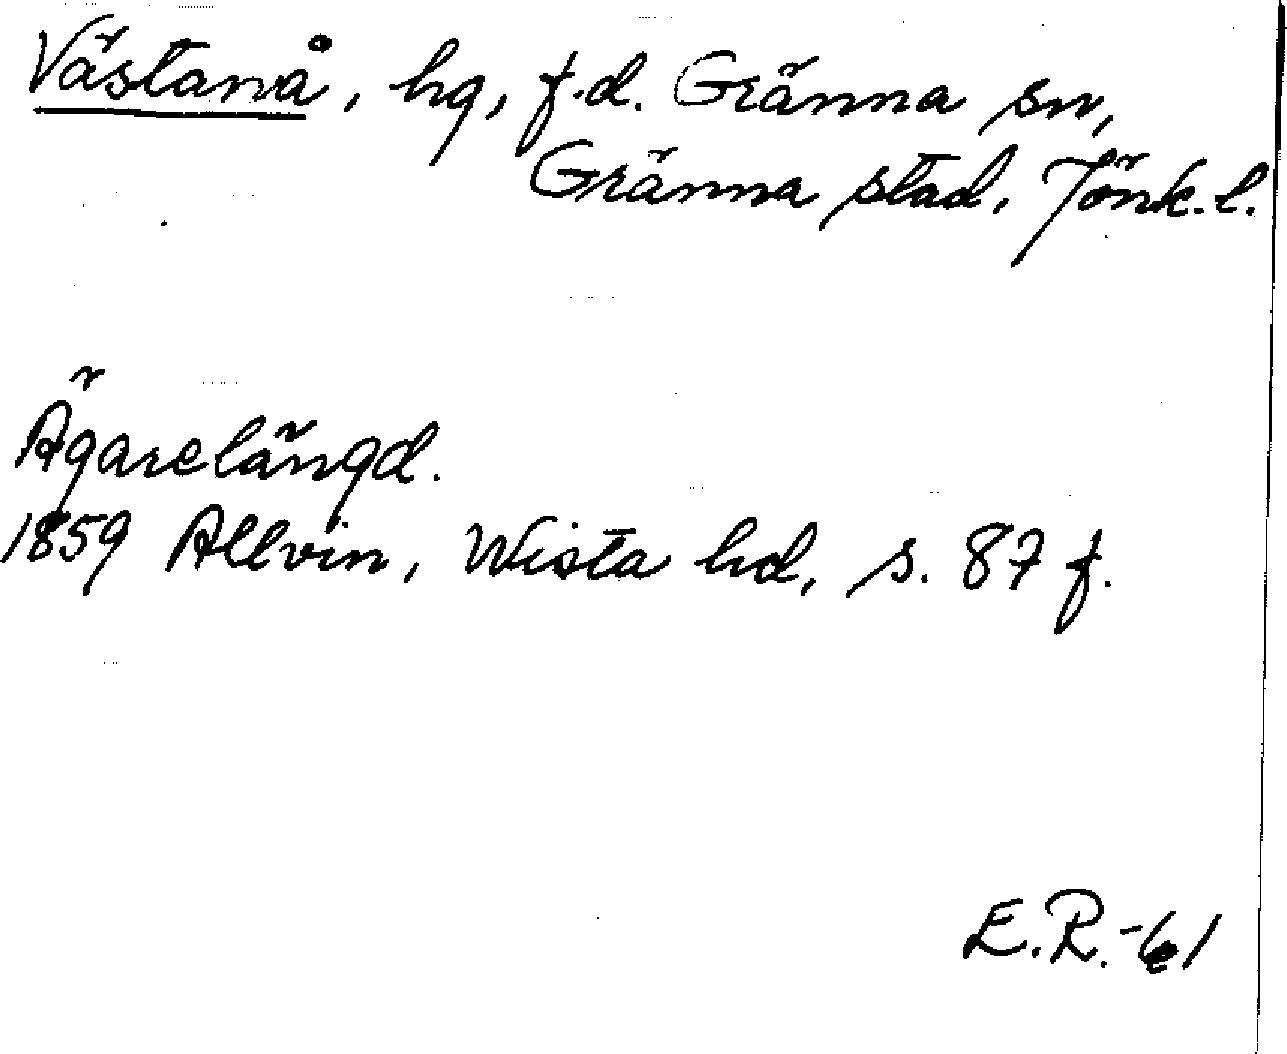 Västanå, hg, f.d. Gränna sn,
Gränna stad, Jönk.l.
Ägarelängd.
1859 Allvin, Wista hd, s. 87 f.
E.R.-61